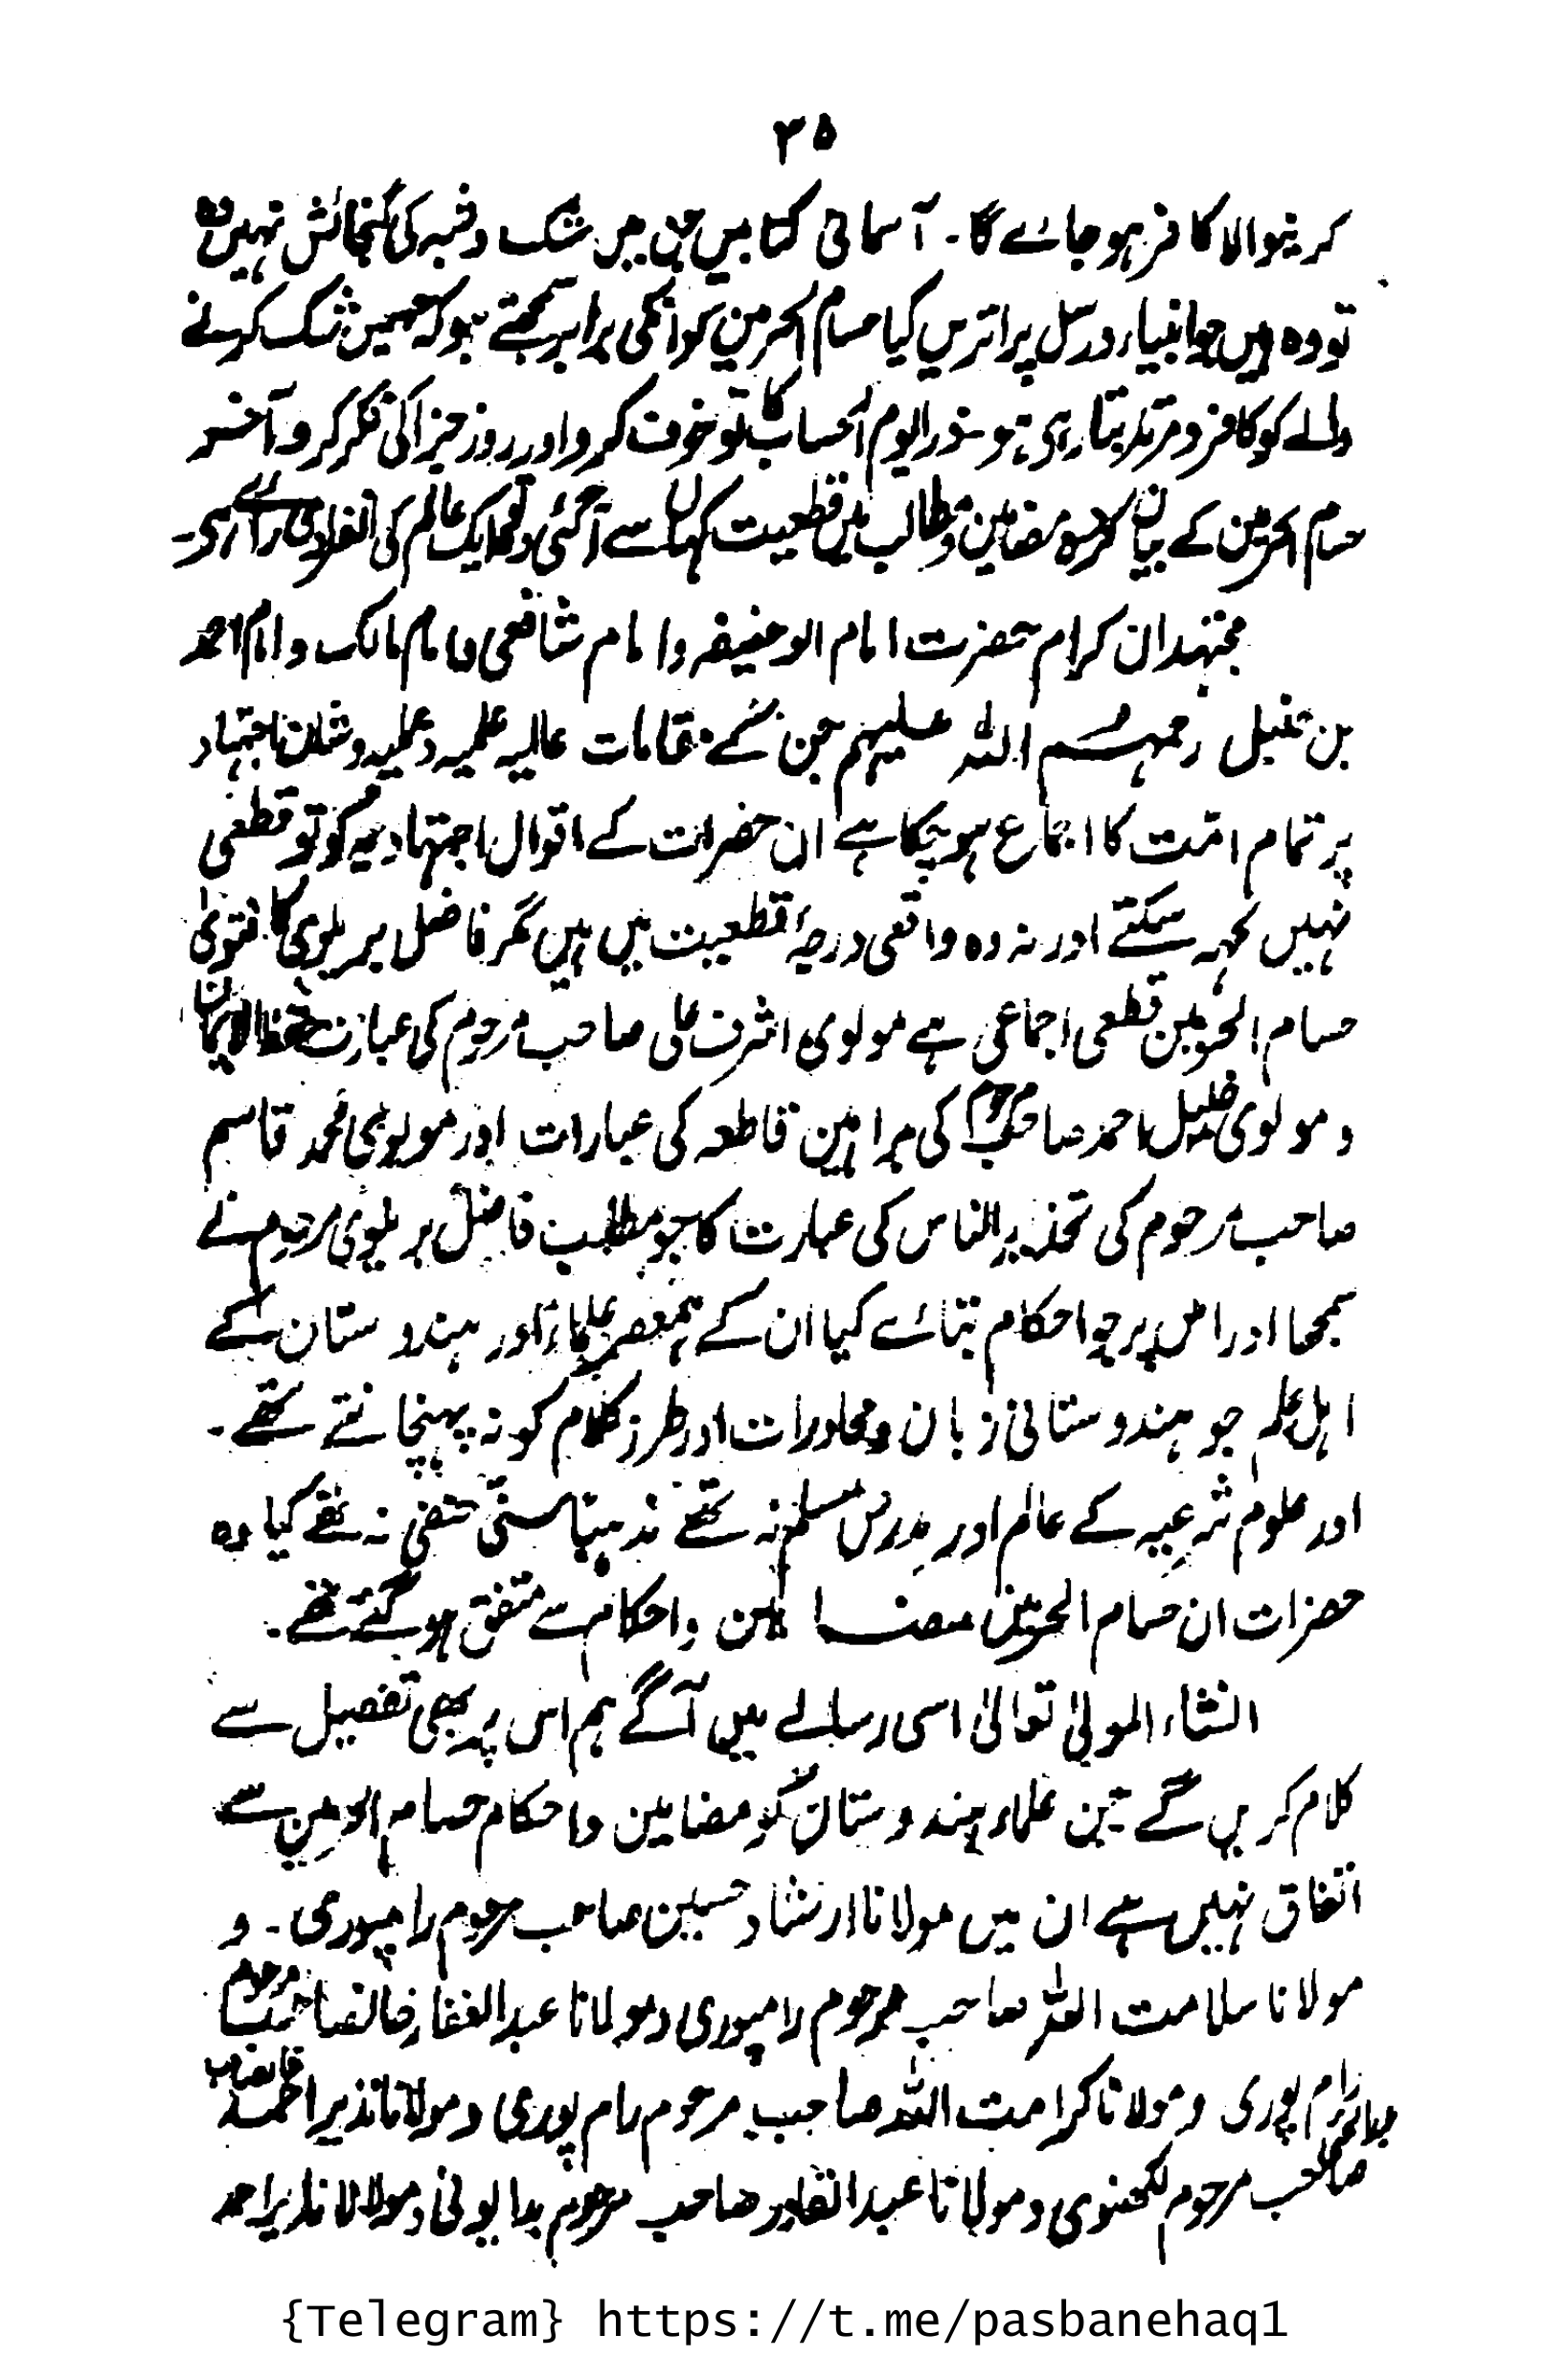 ۳۵
کرنیوالا کافر ہو جائے گا۔ آسمانی کتابیں جن میں شک وشبہ کی گنجائش نہیں
تو وہ ہیں جو انبیاء ورسل پر اتریں کیا حسام الحرمین کو انکی برابر سمجھتے ہو کہ جسمیں شک کرنے
والے کو کافر و مرتد بتا رہی ہو ذرا یوم الحساب کا تو خوف کرو اور روز جزا کی فکر کرو آخر
حسام الحرمین کے بیان کردہ مضامین و مطالب میں قطعیت کہاں سے آ گئی وہ تو ایک عالم کی انفرادی رائے ہے۔
مجتہدان کرام حضرت امام ابو حنیفہ و امام شافعی و امام مالک و امام احمد
بن حنبل رحمہم اللہ علیہم جن کے مقامات عالیہ علمیہ و عملیہ و شان اجتہاد
پر تمام امّت کا اجماع ہو چکا ہے ان حضرات کے اقوال اجتہادیہ کو تو قطعی
نہیں کہہ سکتے اور نہ وہ واقعی درجۂ قطعیت میں ہیں مگر فاضل بریلوی کا فتویٰ
حسام الحرمین قطعی اجماعی ہے مولوی اشرف علی صاحب مرحوم کی عبارت حفظ الایمان
و مولوی خلیل احمد صاحب مرحوم کی براہین قاطعہ کی عبارات اور مولوی محمد قاسم
صاحب مرحوم کی تحذیر الناس کی عبارت کا جو مطلب فاضل بریلوی مرحوم نے
سمجھا اور اس پر جو احکام بتائے کیا ان کے ہمعصر علماء اور ہندوستان کے
اہل علم جو ہندوستانی زبان و محاورات اور طرز کلام کو نہ پہنچانتے تھے۔
اور علوم شرعیہ کے عالم اور مدرس مسلم نہ تھے مذہبا سنّی حنفی نہ تھے کیا وہ
حضرات ان حسام الحرمین مضامین و احکام سے متفق ہو گئے تھے۔
انشاء المولیٰ تعالیٰ اسی رسالے میں آگے ہم اس پر بھی تفصیل سے
کلام کریں گے جین علماء ہندوستان کو مضامین و احکام حسام الحرمین سے
اتفاق نہیں ہے ان میں مولانا ارشاد حسین صاحب مرحوم رامپوری۔ و
مولانا سلامت اللہ صاحب مرحوم رامپوری و مولانا عبد الغفار خانصاحب مرحوم
رام پوری و مولانا کرامت اللہ صاحب مرحوم رام پوری و مولانا نذیر احمد خانصاحب
صاحب مرحوم لکھنوی و مولانا عبد القادر صاحب مرحوم بدایونی و مولانا نذیر احمد
{Telegram} https://t.me/pasbanehaq1